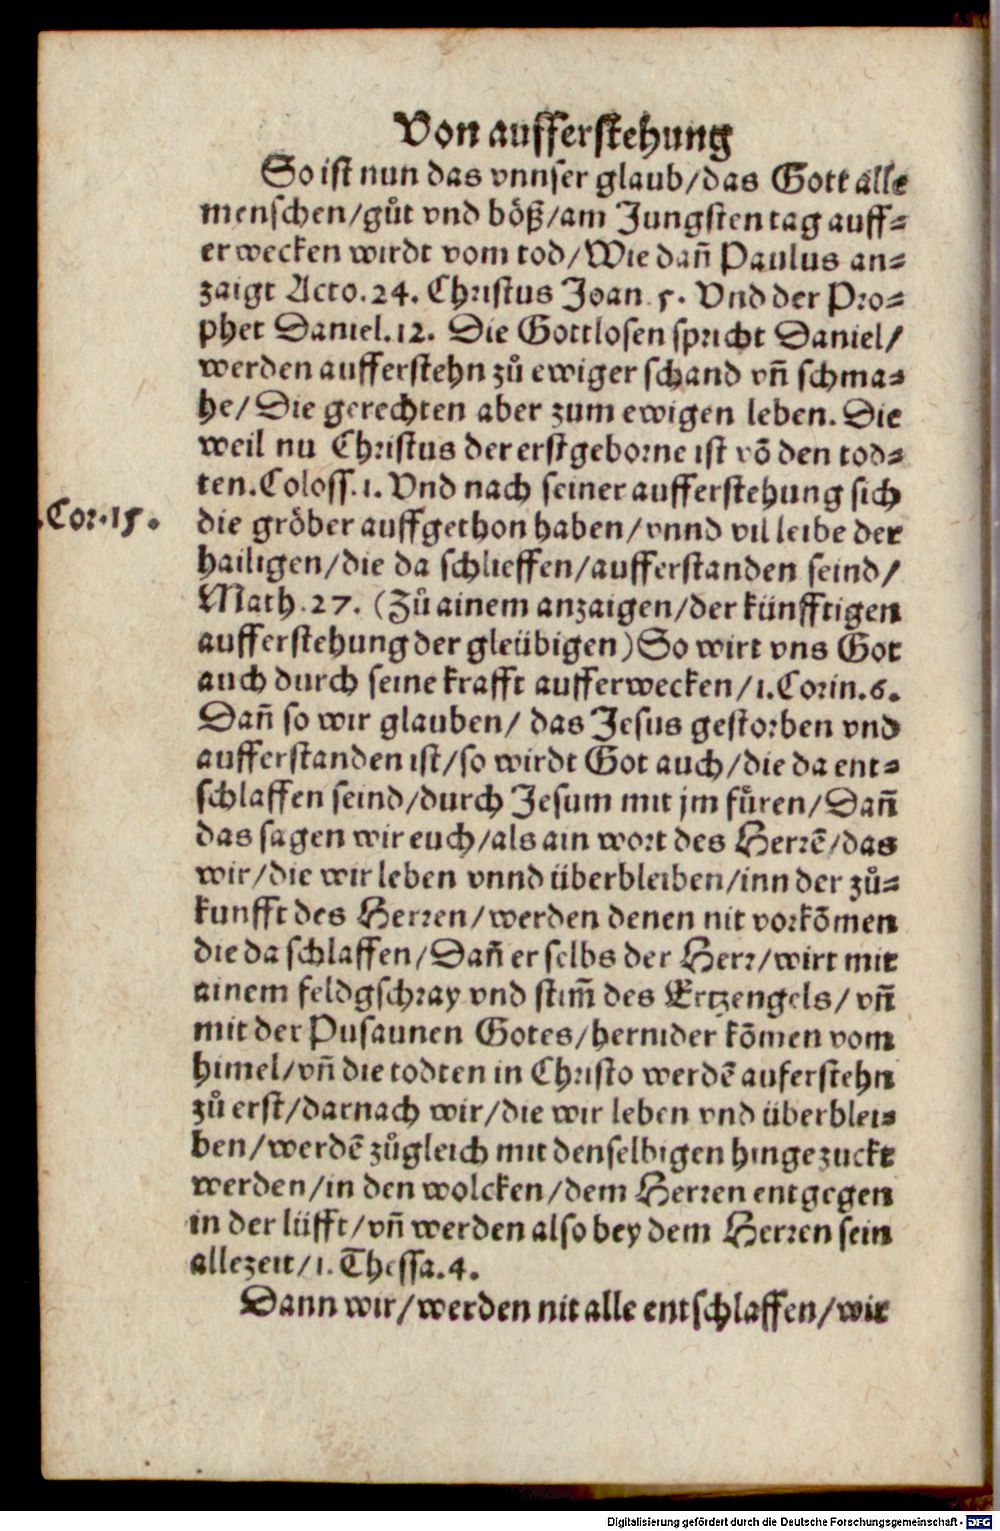 Von aufferstehung
So ist nun das vnnser glaub/das Gott alle
menschen/gůt vnd böß/am Jungsten tag auff-
erwecken wirdt vom tod/Wie dañ Paulus an-
zaigt Acto.24. Christus Joan 5. Vnd der Pro-
phet Daniel.12. Die Gottlosen spricht Daniel/
werden aufferstehn zů ewiger schand vñ schma-
he/Die gerechten aber zum ewigen leben. Die
weil nu Christus der erstgeborne ist võ den tod-
ten.Coloss.1. Vnd nach seiner aufferstehung sich
.Cor.15.
die gröber auffgethon haben/vnnd vil leibe der
hailigen/die da schlieffen/aufferstanden seind/
Math.27. (Zů ainem anzaigen/der künfftigen
aufferstehung der gleübigen) So wirt vns Got
auch durch seine krafft aufferwecken/1.Corin.6.
Dañ so wir glauben/ das Jesus gestorben vnd
aufferstanden ist/so wirdt Got auch/die da ent-
schlaffen seind/durch Jesum mit jm fůren/Dañ
das sagen wir euch/als ain wort des Herrẽ/das
wir/die wir leben vnnd überbleiben/inn der zů-
kunfft des Herren/werden denen nit vorkõmen
die da schlaffen/Dañ er selbs der Herr/wirt mit
ainem feldgschray vnd stim̃ des Ertzengels/ vñ
mit der Pusaunen Gotes/hernider kõmen vom
himel/vñ die todten in Christo werdẽ auferstehn
zů erst/darnach wir/die wir leben vnd überblei-
ben/werdẽ zůgleich mit denselbigen hingezuckt
werden/in den wolcken/dem Herren entgegen
in der lüfft/vñ werden also bey dem Herren sein
allezeit/1. Thessa.4.
Dann wir/werden nit alle entschlaffen/wir
Digitalisierung gefördert durch die Deutsche Forschungsgemeinschaft - DFG